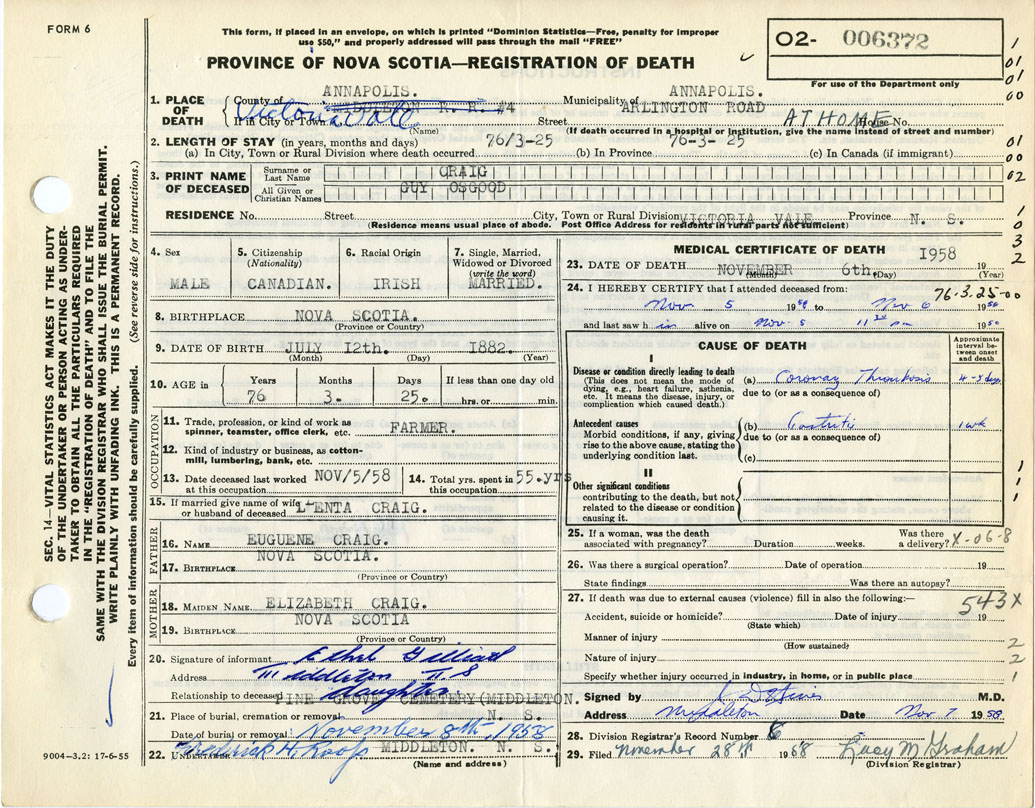 FORM 6
This form, if placed in an envelope, on which is printed "Dominion Statistics—Free, penalty for improper
use $50," and properly addressed will pass through the mail "FREE"
PROVINCE OF NOVA SCOTIA—REGISTRATION OF DEATH
02- 006372
For use of the Department only
1. PLACE OF DEATH
County of ANNAPOLIS. Municipality of ANNAPOLIS.
If in City or Town MIDDLETON R. R. #4 Victoria Vale (Name) Street ARLINGTON ROAD House No. AT HOME
(If death occurred in a hospital or institution, give the name instead of street and number)
2. LENGTH OF STAY (in years, months and days)
(a) In City, Town or Rural Division where death occurred 76/3-25 (b) In Province 76-3-25 (c) In Canada (if immigrant)
3. PRINT NAME OF DECEASED
Surname or Last Name CRAIG
All Given or Christian Names GUY OSGOOD
RESIDENCE No. Street City, Town or Rural Division VICTORIA VALE Province N. S.
(Residence means usual place of abode. Post Office Address for residents in rural parts not sufficient)
4. Sex MALE
5. Citizenship (Nationality) CANADIAN.
6. Racial Origin IRISH
7. Single, Married, Widowed or Divorced (write the word) MARRIED.
8. BIRTHPLACE NOVA SCOTIA.
(Province or Country)
9. DATE OF BIRTH JULY 12th. 1882.
(Month) (Day) (Year)
10. AGE in Years 76 Months 3. Days 25. If less than one day old hrs. or min.
OCCUPATION
11. Trade, profession, or kind of work as spinner, teamster, office clerk, etc. FARMER.
12. Kind of industry or business, as cotton-mill, lumbering, bank, etc.
13. Date deceased last worked at this occupation NOV/5/58
14. Total yrs. spent in this occupation 55.yrs
15. If married give name of wife or husband of deceased L'ENTA CRAIG.
FATHER
16. NAME EUGUENE CRAIG.
17. BIRTHPLACE NOVA SCOTIA.
(Province or Country)
MOTHER
18. MAIDEN NAME ELIZABETH CRAIG.
19. BIRTHPLACE NOVA SCOTIA
(Province or Country)
20. Signature of informant Ethel
Address Middleton N S
Relationship to deceased daughter
21. Place of burial, cremation or removal PINE GROVE CEMETERY(MIDDLETON. N. S.
Date of burial or removal November 8th, 1958
22. UNDERTAKER Frederick H Roop MIDDLETON. N. S.
(Name and address)
MEDICAL CERTIFICATE OF DEATH
23. DATE OF DEATH NOVEMBER 6th. 1958 19
(Month) (Day) (Year)
24. I HEREBY CERTIFY that I attended deceased from: 76-3.25-00
Nov 5 1958 to Nov 6 1958
and last saw him alive on Nov. 5 11 pm 1958
CAUSE OF DEATH
Approximate interval between onset and death
I
Disease or condition directly leading to death
(This does not mean the mode of dying, e.g., heart failure, asthenia, etc. It means the disease, injury, or complication which caused death.)
(a) Coronary Thrombosis 4-5 days
due to (or as a consequence of)
Antecedent causes
Morbid conditions, if any, giving rise to the above cause, stating the underlying condition last.
(b) Gastritis 1 wk
due to (or as a consequence of)
(c)
II
Other significant conditions
contributing to the death, but not related to the disease or condition causing it.
25. If a woman, was the death associated with pregnancy? Duration weeks. Was there a delivery? X-06-8
26. Was there a surgical operation? Date of operation 19
State findings Was there an autopsy?
27. If death was due to external causes (violence) fill in also the following:— 543X
Accident, suicide or homicide? Date of injury 19
(State which)
Manner of injury
(How sustained)
Nature of injury
Specify whether injury occurred in industry, in home, or in public place
Signed by M.D.
Address Middleton Date Nov 7 1958
28. Division Registrar's Record Number 6
29. Filed November 28th 1958 Lucy M Graham
(Division Registrar)
SEC. 14—VITAL STATISTICS ACT MAKES IT THE DUTY
OF THE UNDERTAKER OR PERSON ACTING AS UNDER-
TAKER TO OBTAIN ALL THE PARTICULARS REQUIRED
IN THE "REGISTRATION OF DEATH" AND TO FILE THE
SAME WITH THE DIVISION REGISTRAR WHO SHALL ISSUE THE BURIAL PERMIT.
WRITE PLAINLY WITH UNFADING INK. THIS IS A PERMANENT RECORD.
Every item of information should be carefully supplied. (See reverse side for instructions.)
9004-3.2: 17-6-55
1
01
01
00
01
00
02
1
0
3
2
1
1
1
2
2
1